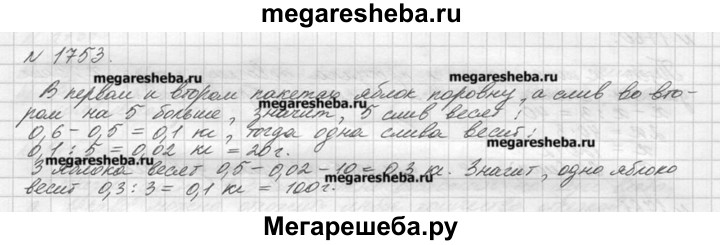 megaresheba.ru
N 1753.
megaresheba.ru
megaresheba.ru
В первом и втором пакетах яблок поровну, а слив во вто-
ром на 5 больше, значит, 5 слив весят:
megaresheba.ru
0,6 - 0,5 = 0,1 кг, тогда одна слива весит:
0,1 : 5 = 0,02 кг = 20 г.
megaresheba.ru
3 яблока весят 0,5 - 0,02 · 10 = 0,3 кг. Значит, одно яблоко
megaresheba.ru
весит 0,3 : 3 = 0,1 кг = 100 г.
Мегарешеба.ру